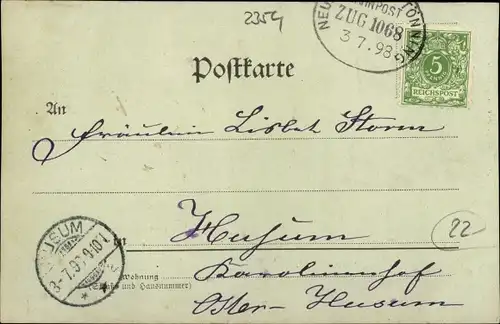 2354
NEU TÖNNING
BAHNPOST
ZUG 1068
3 7.98
5
REICHSPOST
Postkarte
An
Fräulein Lisbet Storm
HUSUM
3.7.98 9-10
in Husum
Wohnung
(Straße und Hausnummer)
Karolinenhof
Oster-Husum
22